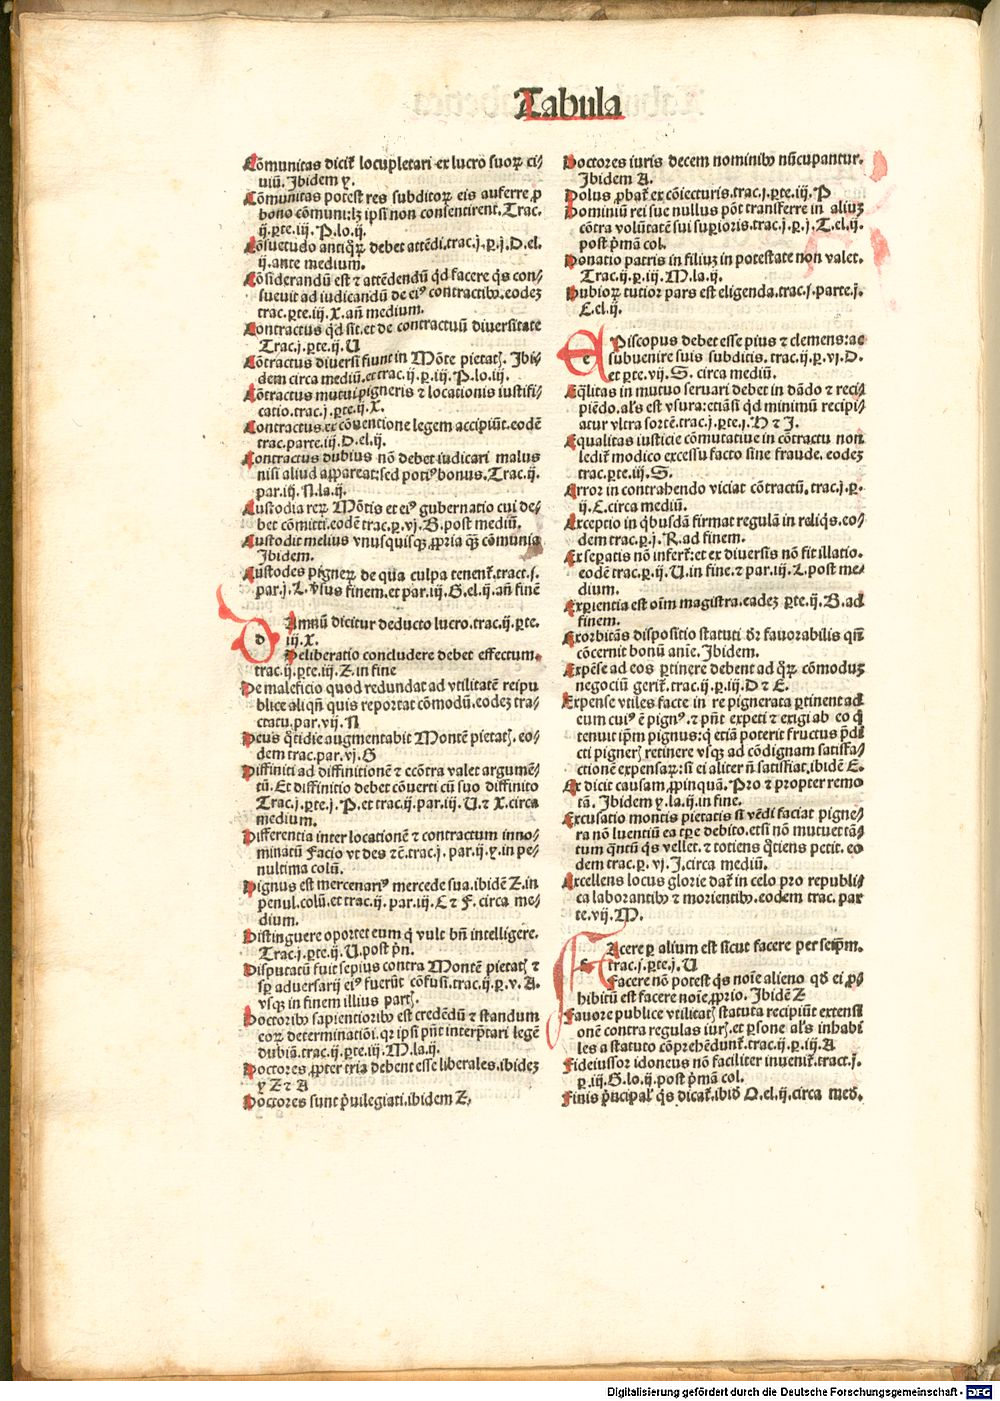 Tabula
Cōmunitas dicit̄ locupletari ex lucro suoꝝ ci⸗
uiū. Ibidem y.
Cōmunitas potest res subditoꝝ eis auferre ꝓ
bono cōmuni:lꝫ ipsi non consentirent. Trac.
ij. ꝑte.iij. P.lo.ij.
Cōsuetudo antiqꝝ debet attēdi.trac.j.ꝑ.j.D.el.
ij.ante medium.
Cōsiderandū est ⁊ attēdendū qd facere qs con⸗
sueuit ad iudicandū de eiꝰ contractibꝫ.eodeꝫ
trac.ꝑte.iij.X.an̄ medium.
Contractus qd sit.et de contractuū diuersitate
Trac.j.ꝑte.ij.U
Cōtractus diuersi fiunt in Mōte pietatꝭ. Ibi⸗
dem circa mediū.et trac.ij.ꝑ.iij.P.lo.iij.
Cōtractus mutui pigneris ⁊ locationis iustifi⸗
catio.trac.j.ꝑte.ij.X.
Contractus ex cōuentione legem accipiūt.eodē
trac.parte.iij.D.el.ij.
Contractus dubius nō debet iudicari malus
nisi aliud appareat:sed potiꝰ bonus.Trac.ij.
par.iij.N.la.ij.
Custodia reꝝ Mōtis et eiꝰ gubernatio cui de⸗
bet cōmitti.eodē trac.ꝑ.vj.B.post mediū.
Custodit melius vnusquisqꝫ ꝓpria qꝫ cōmunia
Ibidem.
Custodes pigneꝝ de qua culpa tenent̄.tract.j.
par.j.L.v̄sus finem.et par.iij.G.el.ij.an̄ finē
d Damnū dicitur deducto lucro.trac.ij.ꝑte.
iij.X.
Deliberatio concludere debet effectum.
trac.ij.ꝑte.iij.Z.in fine
De maleficio quod redundat ad vtilitatē reipu
blice aliqn̄ quis reportat cōmodū.eodeꝫ tra⸗
ctatu.par.vij.N
Deus q̄tidie augmentabit Montē pietatꝭ.eo⸗
dem trac.par.vj.G
Diffiniti ad diffinitionē ⁊ ecōtra valet argumē⸗
tū.Et diffinitio debet cōuerti cū suo diffinito
Trac.j.ꝑte.j.P.et trac.ij.par.iij.U.⁊ X.circa
medium.
Differentia inter locationē ⁊ contractum inno⸗
minatū Facio vt des ⁊c̄.trac.j.par.ij.y.in pe⸗
nultima colū.
Dignus est mercenariꝰ mercede sua.ibidē Z.in
penul.colū.et trac.ij.par.iij.E ⁊ F.circa me⸗
dium.
Distinguere oportet eum q̇ vult bn̄ intelligere.
Trac.j.ꝑte.ij.U.post pn̄.
Disputatū fuit sepius contra Montē pietatꝭ ⁊
sꝑ aduersarij eiꝰ fuerūt cōfusi.trac.ij.ꝑ.v.A.
vsqꝫ in finem illius partꝭ.
Doctoribꝫ sapientioribꝫ est credēdū ⁊ standum
eoꝝ determinatiōi.qꝛ ipsi pn̄t interp̄tari legē
dubiā.trac.ij.ꝑte.iij.M.la.ij.
Doctores ꝓpter tria debent esse liberales.ibideꝫ
y Z ⁊ A
Doctores sunt p̄uilegiati.ibidem Z.
Doctores iuris decem nominibꝫ nūcupantur.
Ibidem A.
Dolus ꝓbat̄ ex cōiecturis.trac.j.ꝑte.iij.P
Dominiū rei sue nullus pōt transferre in aliuꝫ
cōtra volūtatē sui suꝑioris.trac.j.ꝑ.j.T.el.ij.
post p̄mā col.
Donatio patris in filiuꝫ in potestate non valet.
Trac.ij.ꝑ.iij.M.la.ij.
Dubioꝝ tutior pars est eligenda.trac.j.parte.j.
E.el.ij.
e EPiscopus debet esse pius ⁊ clemens:ac
subuenire suis subditis.trac.ij.ꝑ.vj.D.
et ꝑte.vij.S. circa mediū.
Eq̄litas in mutuo seruari debet in dādo ⁊ reci⸗
piēdo.al's est vsura:etiāsi qd minimū recipi⸗
atur vltra sortē.trac.j.ꝑte.j.H ⁊ I.
Equalitas iusticie cōmutatiue in cōtractu non
ledit̄ modico excessu facto sine fraude. eodeꝫ
trac.ꝑte.iij.S.
Error in contrahendo viciat cōtractū.trac.j.ꝑ.
ij.E.circa mediū.
Exceptio in qbusdā firmat regulā in reliqs.eo⸗
dem trac.ꝑ.j.R.ad finem.
Ex seꝑatis nō infert̄:et ex diuersis nō fit illatio.
eodē trac.ꝑ.ij.U.in fine.⁊ par.iij.L.post me⸗
dium.
Exꝑientia est oīm magistra.eadeꝫ ꝑte.ij.B.ad
finem.
Exorbitās dispositio statuti dr̄ fauorabilis qn̄
cōcernit bonū anīe.Ibidem.
Expēse ad eos ꝑtinere debent ad qꝝ cōmoduꝫ
negociū gerit̄.trac.ij.ꝑ.iij.D ⁊ E.
Expense vtiles facte in re pignerata ꝑtinent ad
eum cuiꝰ ē pignꝰ.⁊ pn̄t expeti ⁊ exigi ab eo q̇
tenuit ip̄m pignus:q̇ etiā poterit fructus p̄di
cti pignerꝭ retinere vsqꝫ ad cōdignam satisfa⸗
ctionē expensaꝝ:si ei aliter n̄ satisfiat.ibidē E.
Ex dicit causam ꝓpinquā. Pro ⁊ propter remo
tā. Ibidem y.la.ij.in fine.
Excusatio montis pietatis si vēdi faciat pigne⸗
ra nō luentiū ea tꝑe debito.etsi nō mutuet tā⸗
tum qntū qs vellet.⁊ totiens qtiens petit.eo
dem trac.ꝑ.vj.I.circa mediū.
Excellens locus glorie dat̄ in celo pro republi⸗
ca laborantibꝫ ⁊ morientibꝫ.eodem trac.par
te.vij.M.
f FAcere ꝑ alium est sicut facere per seip̄m.
trac.j.ꝑte.j.U
Facere nō potest qs noīe alieno qd ei ꝓ⸗
hibitū est facere noīe ꝓprio. Ibidē Z
Fauore publice vtilitatꝭ statuta recipiūt extensi
onē contra regulas iurꝭ.et ꝑsone al's inhabi
les a statuto cōprehēdunt̄.trac.ij.ꝑ.iij.A
Fideiussor idoneus nō faciliter inuenit̄.tract.j.
ꝑ.iij.G.lo.ij.post p̄mā col.
Finis p̄ncipal' qs dicat̄.ibid̄ O.el.ij.circa med̄.
Digitalisierung gefördert durch die Deutsche Forschungsgemeinschaft - DFG